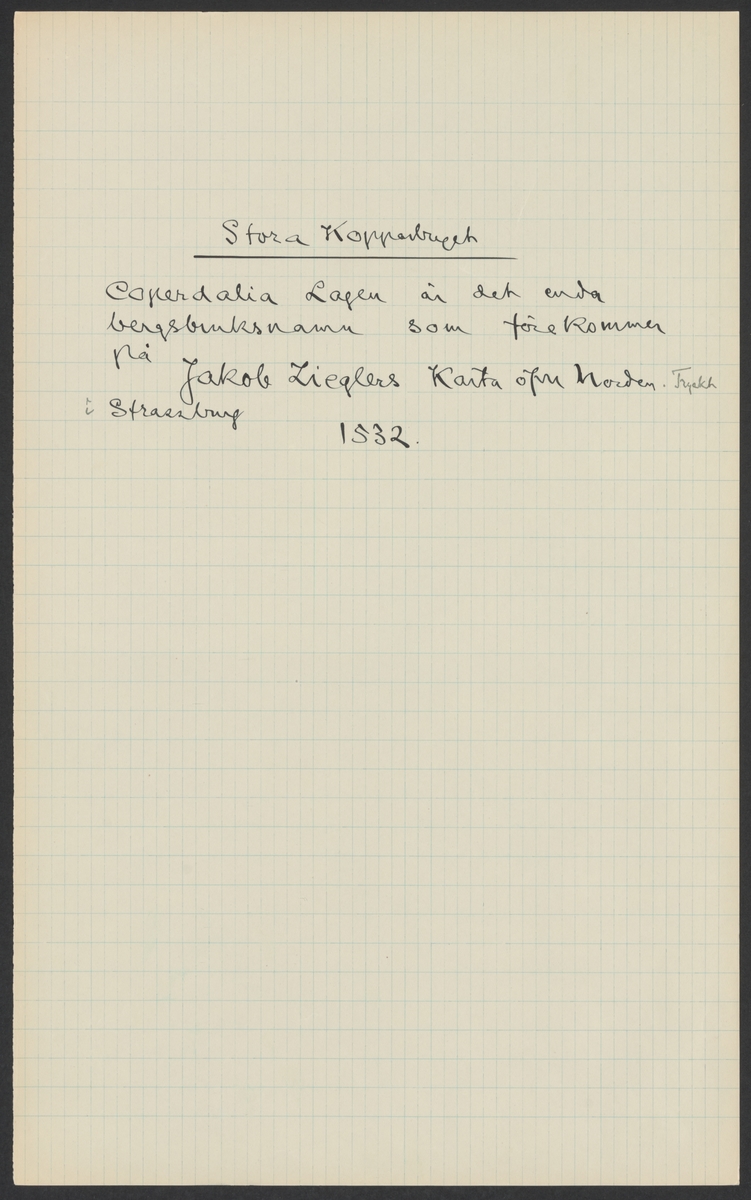 Stora Kopparberget
Coperdalia Lagen är det enda
bergsbruksnamn som förekommer
på
Jakob Zieglers Karta öfver Norden. Tryckt
i Strassburg
1532.